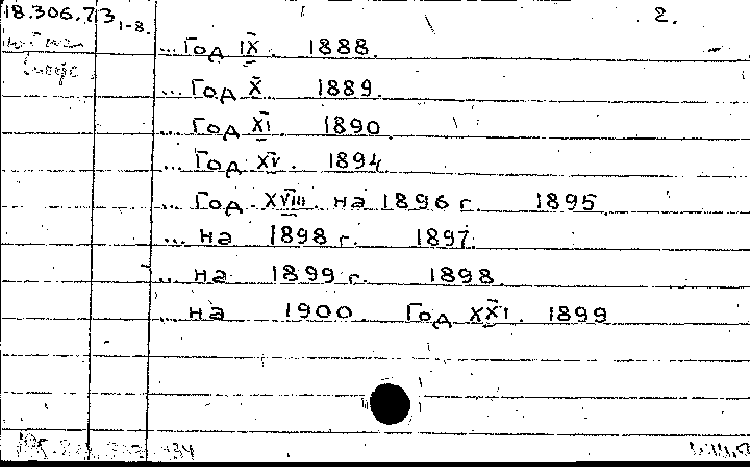 18.306.7.3 1-8. 2.
... Год IX. 1888.
... Год X 1889.
... Год XI. 1890.
... Год XV. 1894
... Год XVIII. на 1896 г. 1895
... на 1898 г. 1897.
... на 1899 г. 1898.
... на 1900. Год XXI. 1899